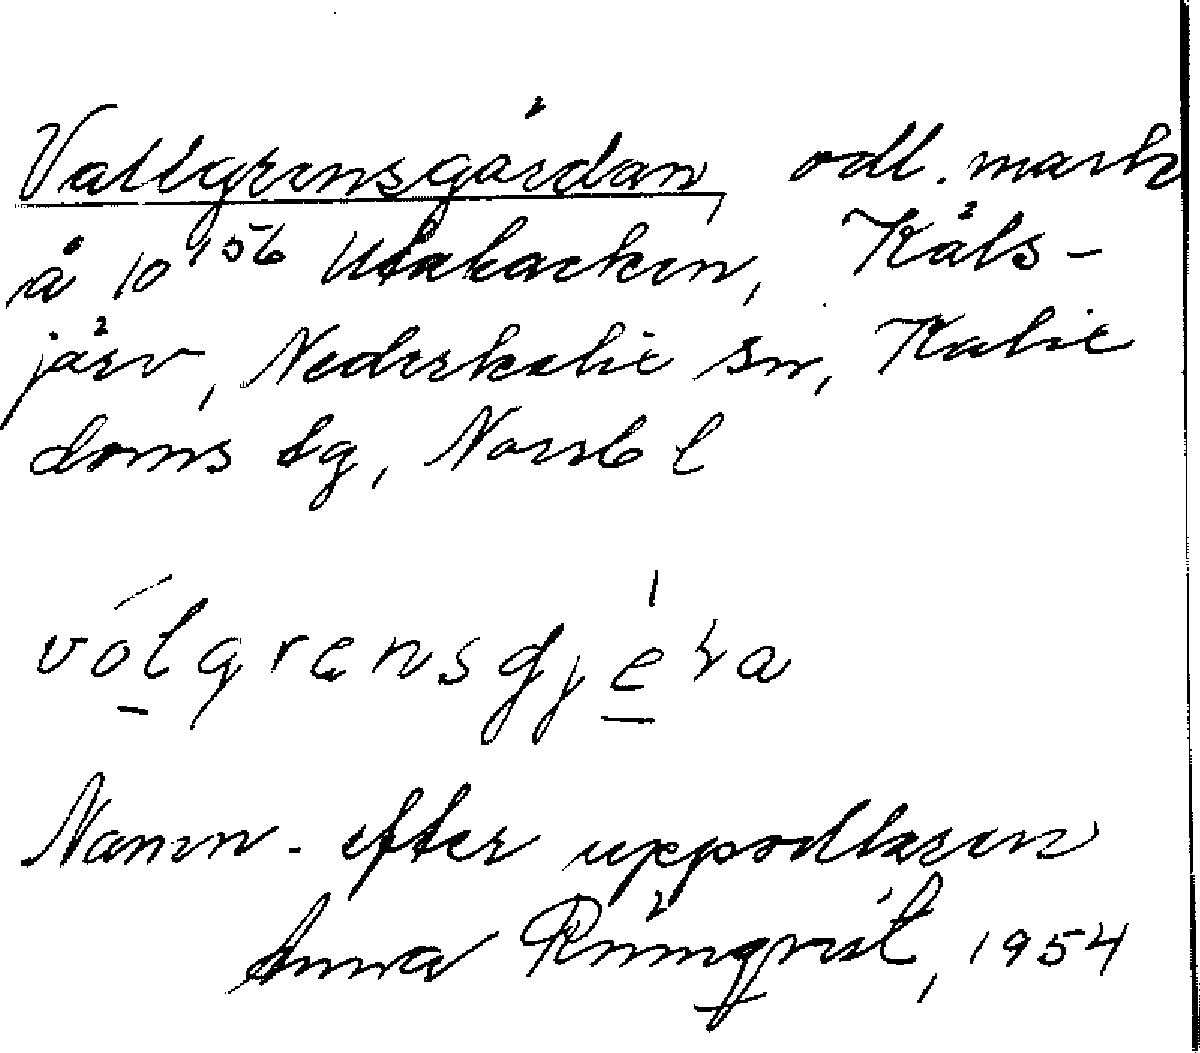 Vallgrensgärdan, odl. mark
å 10¹56 Utabacken, Kåls-
järv, Nederkalix sn, Kalix
doms tg, Norrb l
vólgrensgjęra
Namn. efter uppodlaren
Anna Rönnqvist, 1954